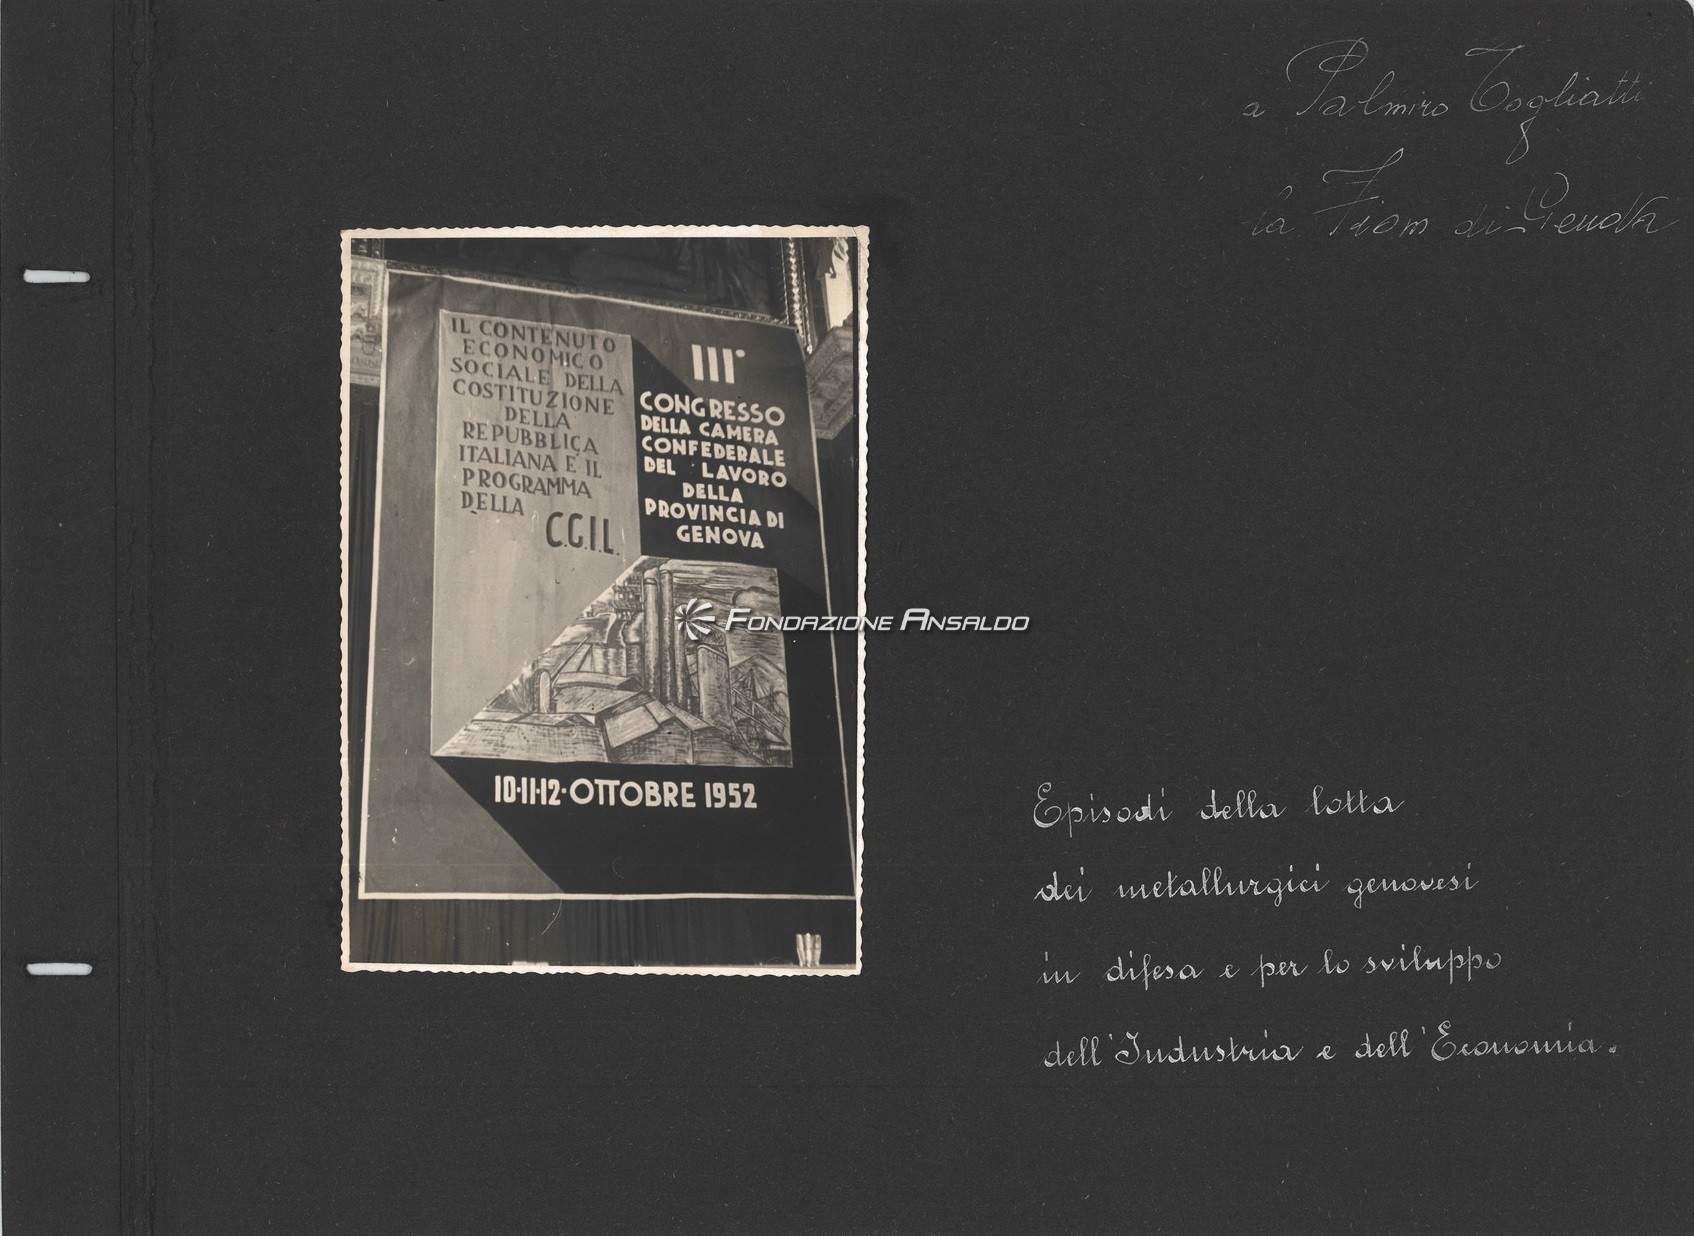 a Palmiro Togliatti
la Fiom di Genova
IL CONTENUTO
ECONOMICO
SOCIALE DELLA
COSTITUZIONE
DELLA
REPUBBLICA
ITALIANA E IL
PROGRAMMA
DELLA
C.G.I.L.
III°
CONGRESSO
DELLA CAMERA
CONFEDERALE
DEL LAVORO
DELLA
PROVINCIA DI
GENOVA
10-11-12-OTTOBRE 1952
FONDAZIONE ANSALDO
Episodi della lotta
dei metallurgici genovesi
in difesa e per lo sviluppo
dell'Industria e dell'Economia.